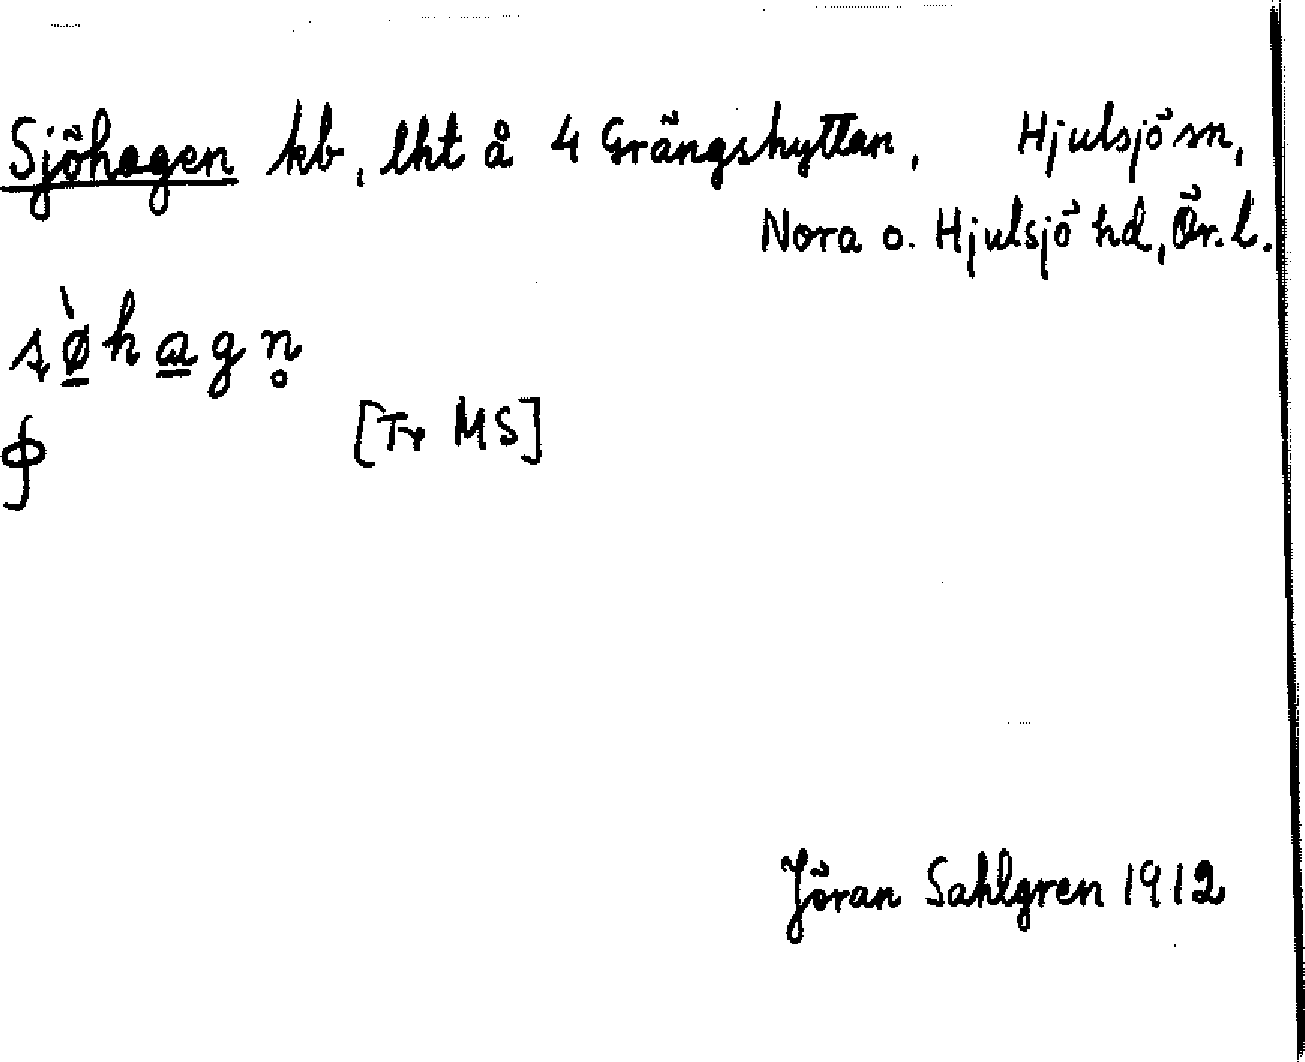 Sjöhagen kb, lht å 4 Grängshyttan, Hjulsjö sn,
Nora o. Hjulsjö hd, Ör. l.
sø̠̀ha̠gn̥
[Tr MS]
Jöran Sahlgren 1912